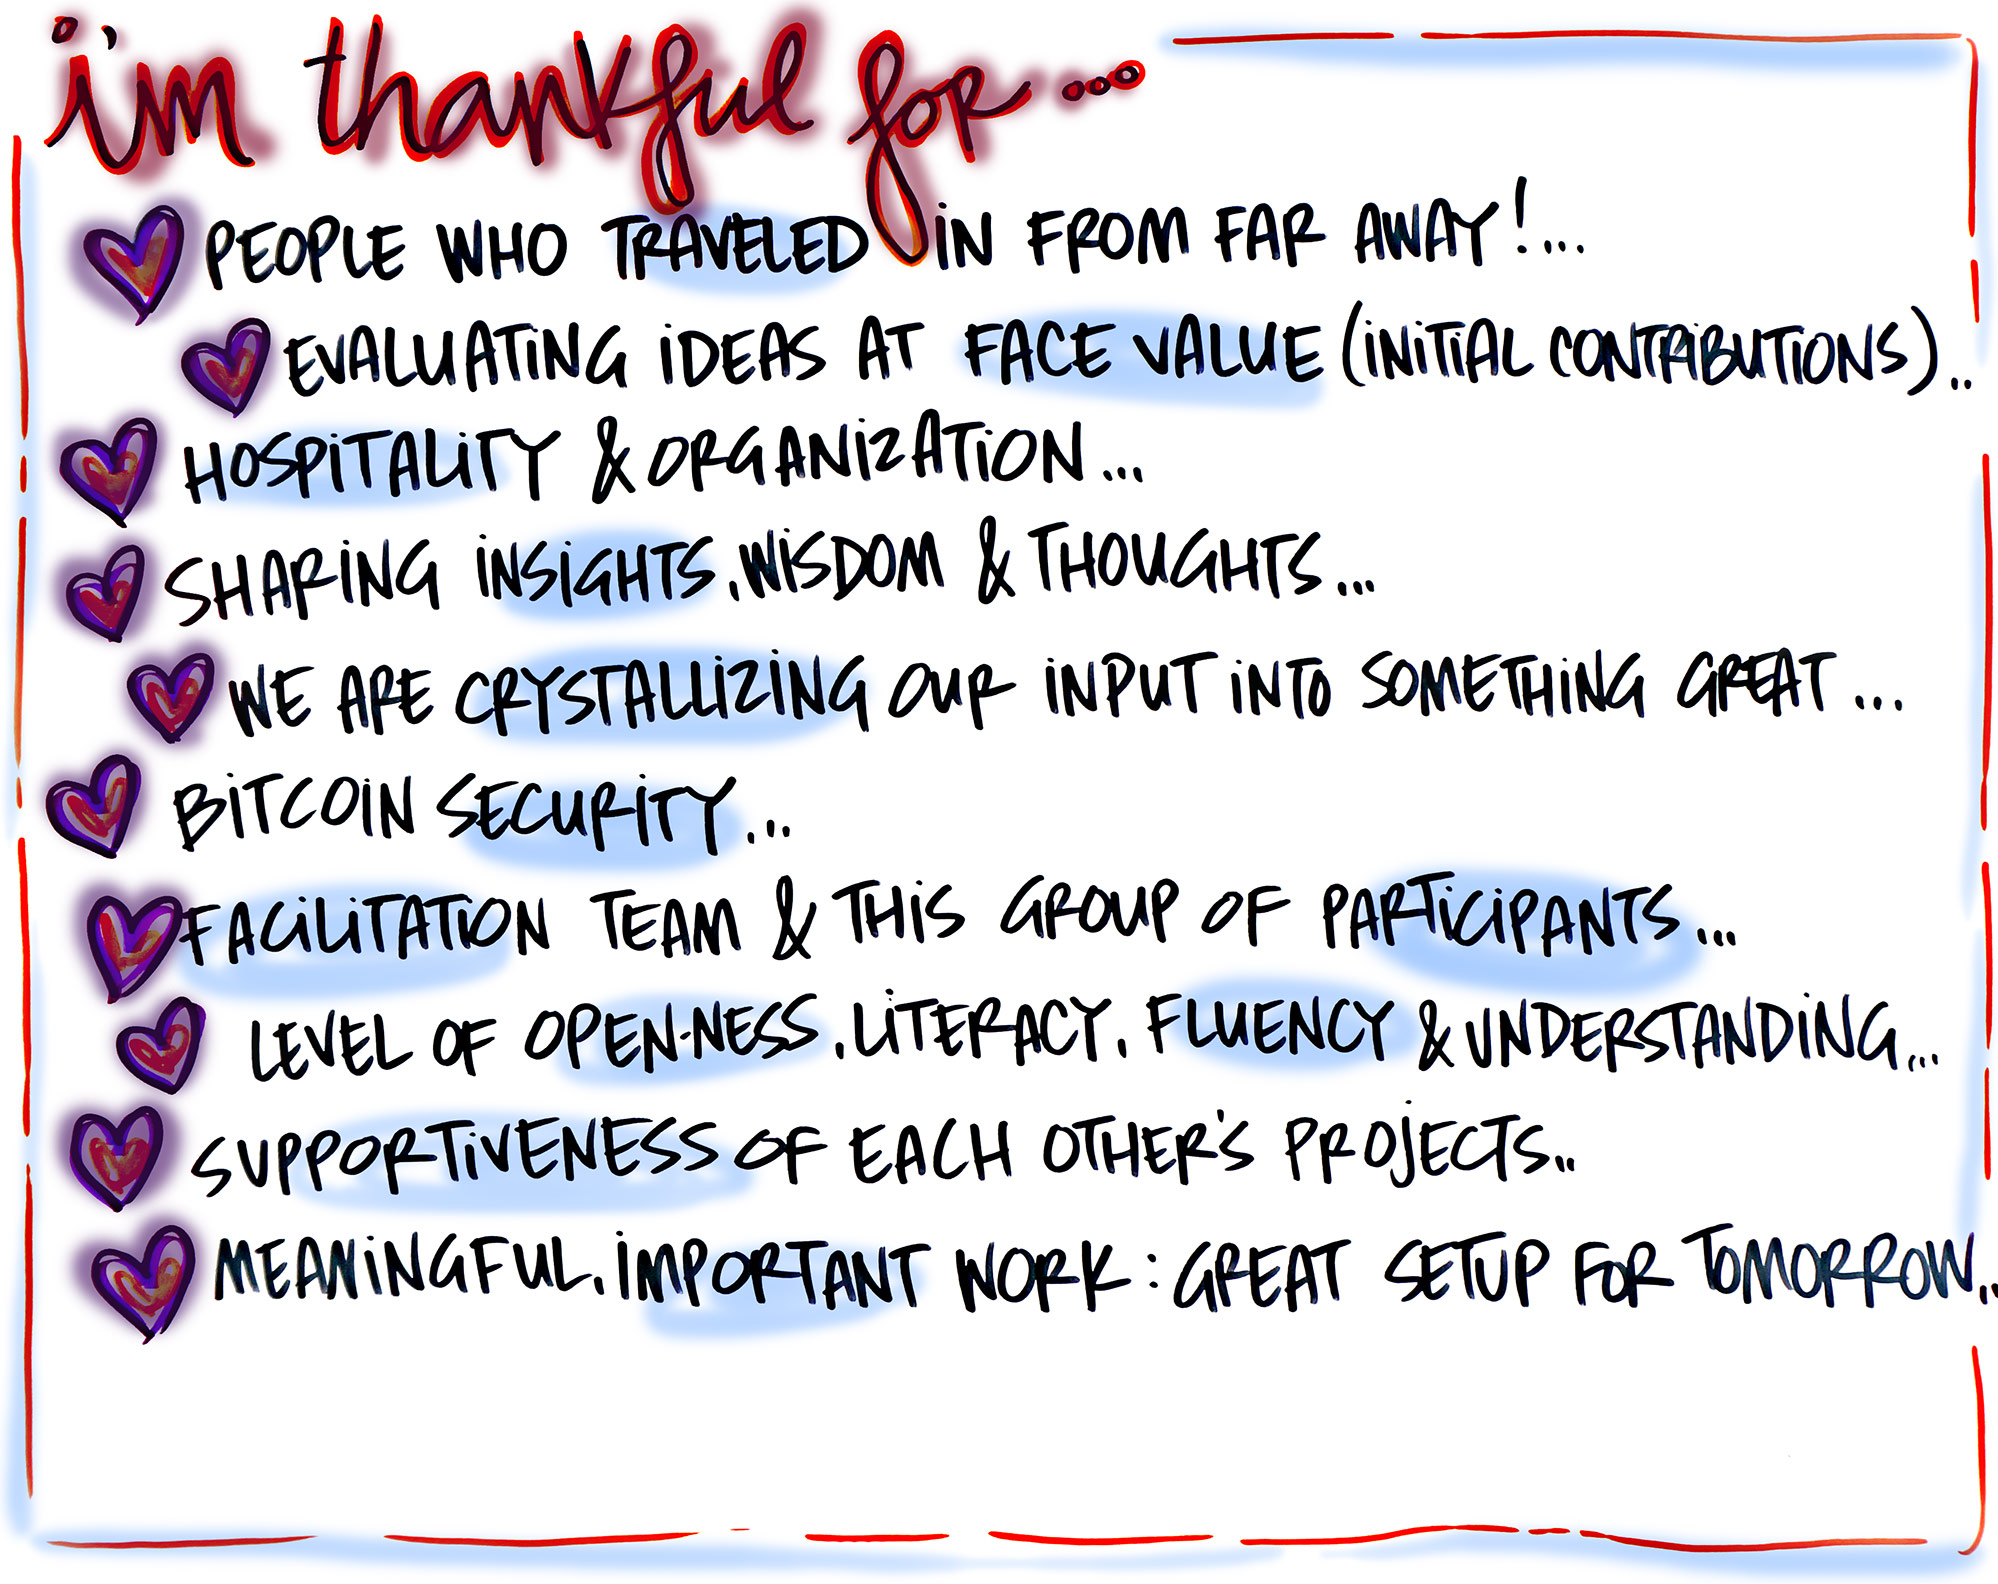 i'm thankful for....
PEOPLE WHO TRAVELED IN FROM FAR AWAY!...
EVALUATING IDEAS AT FACE VALUE (INITIAL CONTRIBUTIONS)..
HOSPITALITY & ORGANIZATION...
SHARING INSIGHTS, WISDOM & THOUGHTS...
WE ARE CRYSTALLIZING OUR INPUT INTO SOMETHING GREAT...
BITCOIN SECURITY...
FACILITATION TEAM & THIS GROUP OF PARTICIPANTS...
LEVEL OF OPEN-NESS, LITERACY, FLUENCY & UNDERSTANDING...
SUPPORTIVENESS OF EACH OTHER'S PROJECTS..
MEANINGFUL, IMPORTANT WORK: GREAT SETUP FOR TOMORROW..